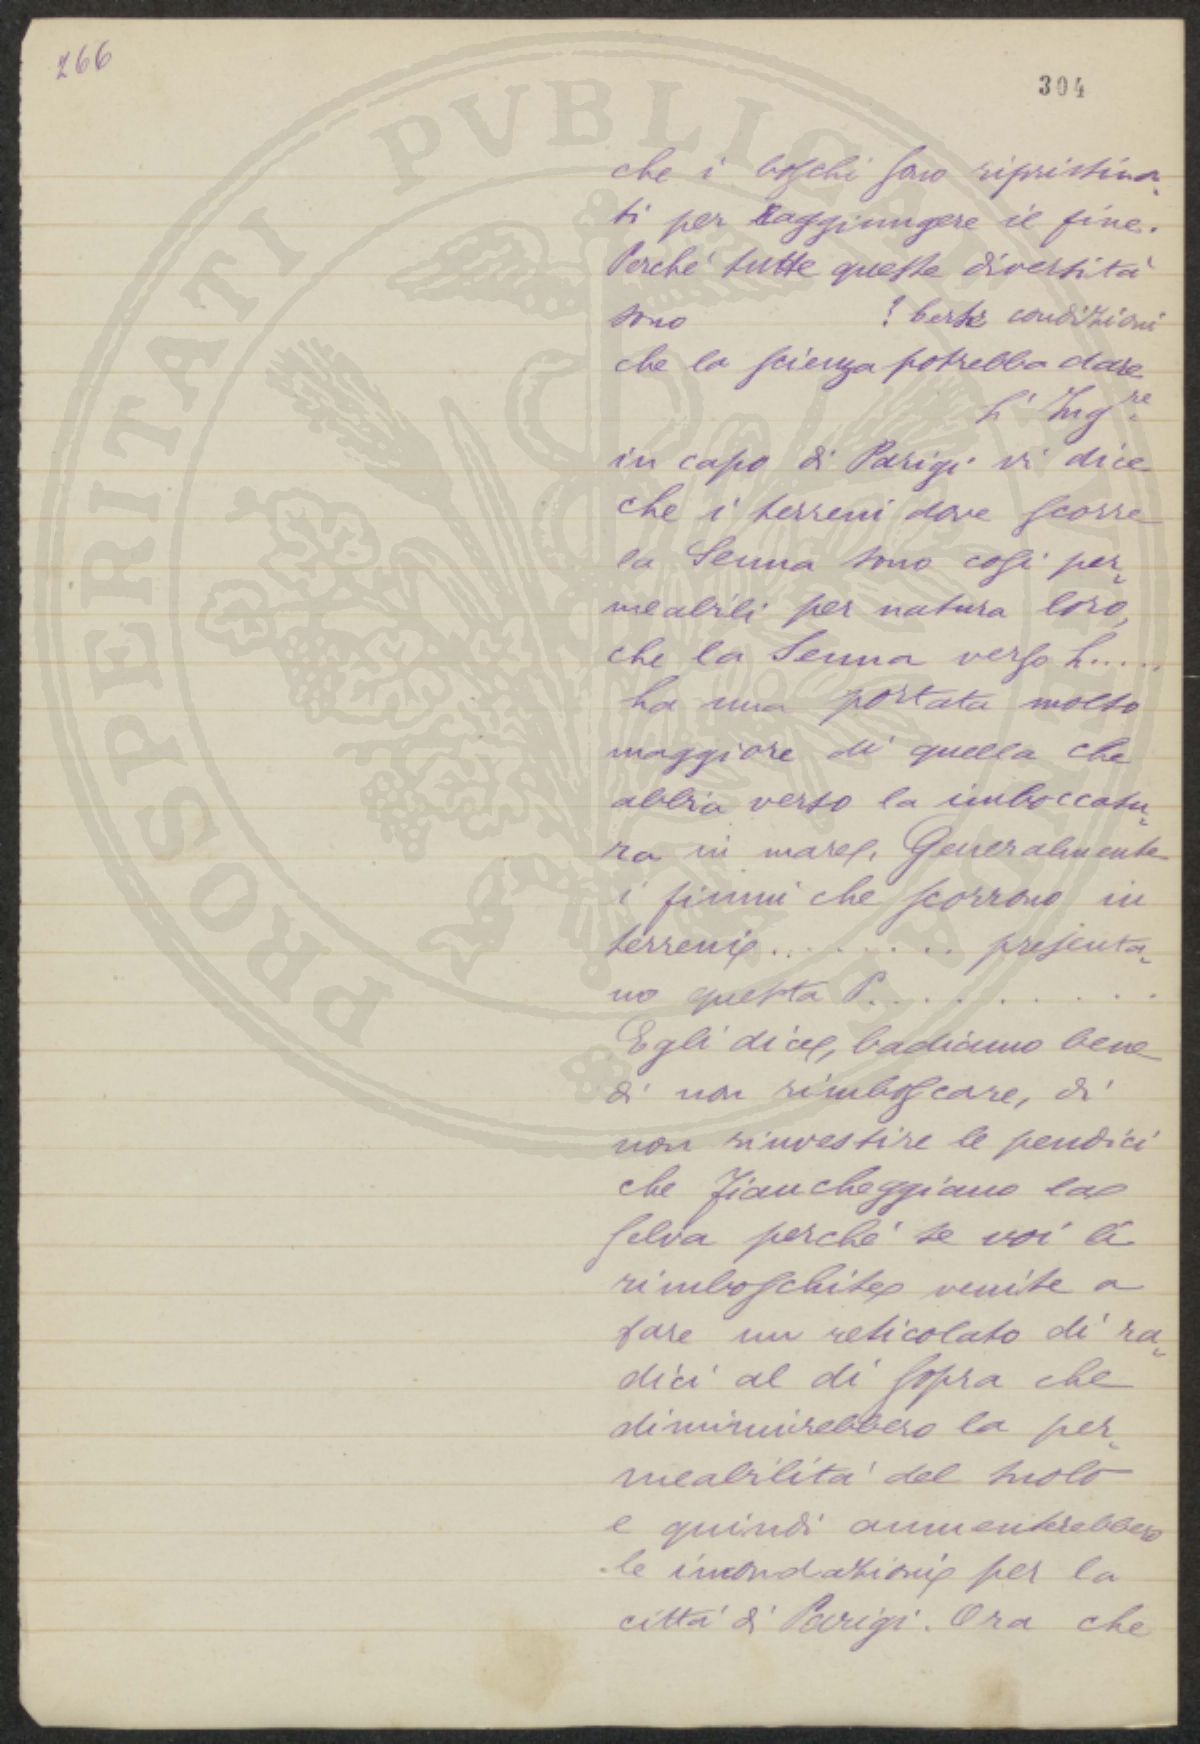 266
304
che i boschi sono ripristina-
ti per raggiungere il fine.
Perché tutte queste diversità
sono ? condizioni
che la scienza potrebbe dare
L'Ing.re
in capo di Parigi vi dice
che i terreni dove scorre
la Senna sono così per-
meabili per natura loro,
che la Senna verso L.....
ha una portata molto
maggiore di quella che
abbia verso la imboccatu-
ra in mare. Generalmente
i fiumi che scorrono in
terreni ......... presenta-
no questa P...........
Egli dice, badiamo bene
di non rimboscare, di
non rinvestire le pendici
che fiancheggiano la
selva perché se voi li
rimboschite venite a
fare un reticolato di ra-
dici al di sopra che
diminuirebbero la per-
meabilità del suolo
e quindi aumenterebbero
le inondazioni per la
città di Parigi. Ora che
PROSPERITATI PVBLICAE